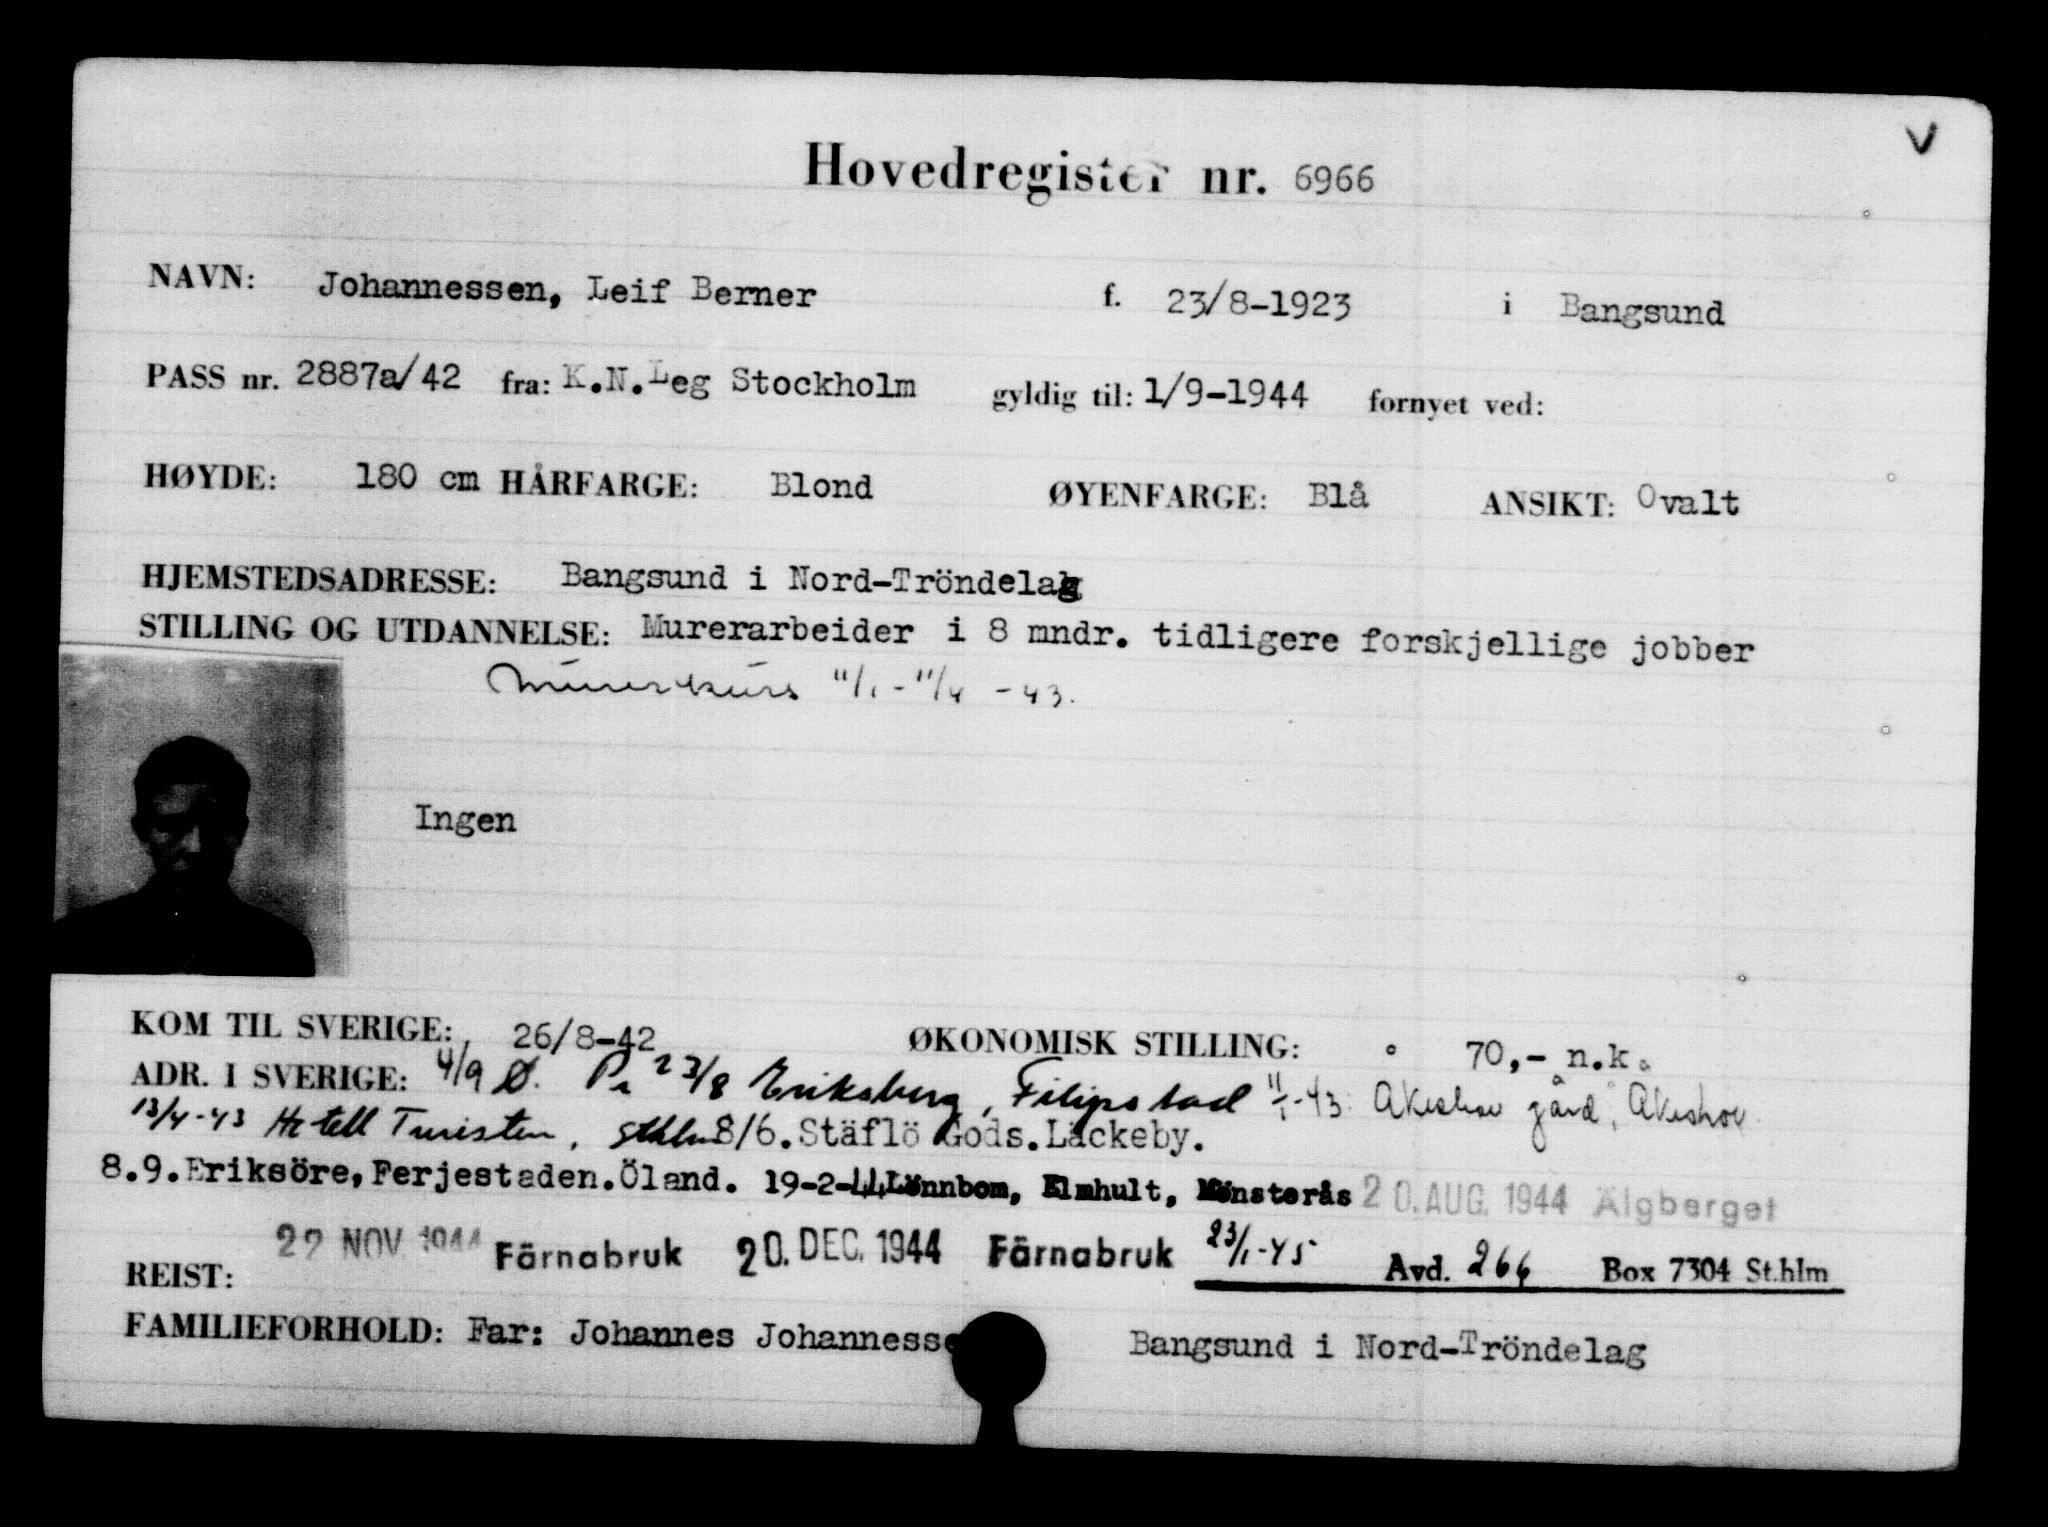 V
Hovedregister nr. 6966
NAVN: Johannessen, Leif Berner f. 23/8-1923 i Bangsund
PASS nr. 2887a/42 fra: K.N.Leg Stockholm gyldig til: 1/9-1944 fornyet ved:
HØYDE: 180 cm HÅRFARGE: Blond ØYENFARGE: Blå ANSIKT: Ovalt
HJEMSTEDSADRESSE: Bangsund i Nord-Tröndelag
STILLING OG UTDANNELSE: Murerarbeider i 8 mndr. tidligere forskjellige jobber
Murerkurs 11/1-11/4 -43.
Ingen
KOM TIL SVERIGE: 26/8-42 ØKONOMISK STILLING: 70,- n.k.
ADR. I SVERIGE: 4/9 Ø. 23/8 Eriksberg, Filipstad 11/1-43. Åkeshov gård, Åkeshov
13/4-43 Hotell Turisten, Sthlm 8/6. Stäflö Gods. Läckeby.
8.9. Eriksöre, Ferjestaden. Öland. 19-2-44 Lönnbom, Elmhult, Mönsterås 20. AUG. 1944 Älgberget
22 NOV 1944 Färnabruk 20. DEC. 1944 Färnabruk 23/1-45 Avd. 266 Box 7304 St.hlm
REIST:
FAMILIEFORHOLD: Far: Johannes Johannesse Bangsund i Nord-Tröndelag